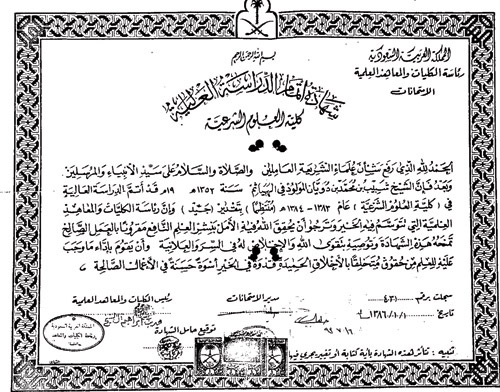 المملكة العربية السعودية
رئاسة الكليات والمعاهد العلمية
الامتحانات
بسم الله الرحمن الرحيم
شهادة إتمام الدراسة العالية
كلية العلوم الشرعية
الحمد لله الذي رفع شأن علماء الشريعة العاملين والصلاة والسلام على سيد الأنبياء والمرسلين
وبعد فإن الشيخ شبيب بن محمد بن دويان المولود في سنة ١٣٥٢ هـ ١٩ م قد أتم الدراسة العالية
في (كلية العلوم الشرعية) عام ١٣٨٣-١٣٨٤هـ (منتظما) بتقدير (جيد) وإن رئاسة الكليات والمعاهد
العلمية التي تتوسم فيه الخير وترجو أن يحقق الله فيه الأمل بنشر العلم النافع مقرونا بالعمل الصالح
تمنحه هذه الشهادة وتوصيه بتقوى الله والإخلاص له في السر والعلانية وأن يقوم بأداء ما وجب
عليه للعلم من حقوق متحليا بالأخلاق الحميدة قدوة في الخير أسوة حسنة في الأعمال الصالحة
سجلت برقم ٤٣١
تاريخ ١٣٨٦/١٠/١
مدير الامتحانات
رئيس الكليات والمعاهد العلمية
توقيع حامل الشهادة
المملكة العربية السعودية
تنبيه : تتأثر هذه الشهادة بأية كتابة أو تغيير يجري فيها